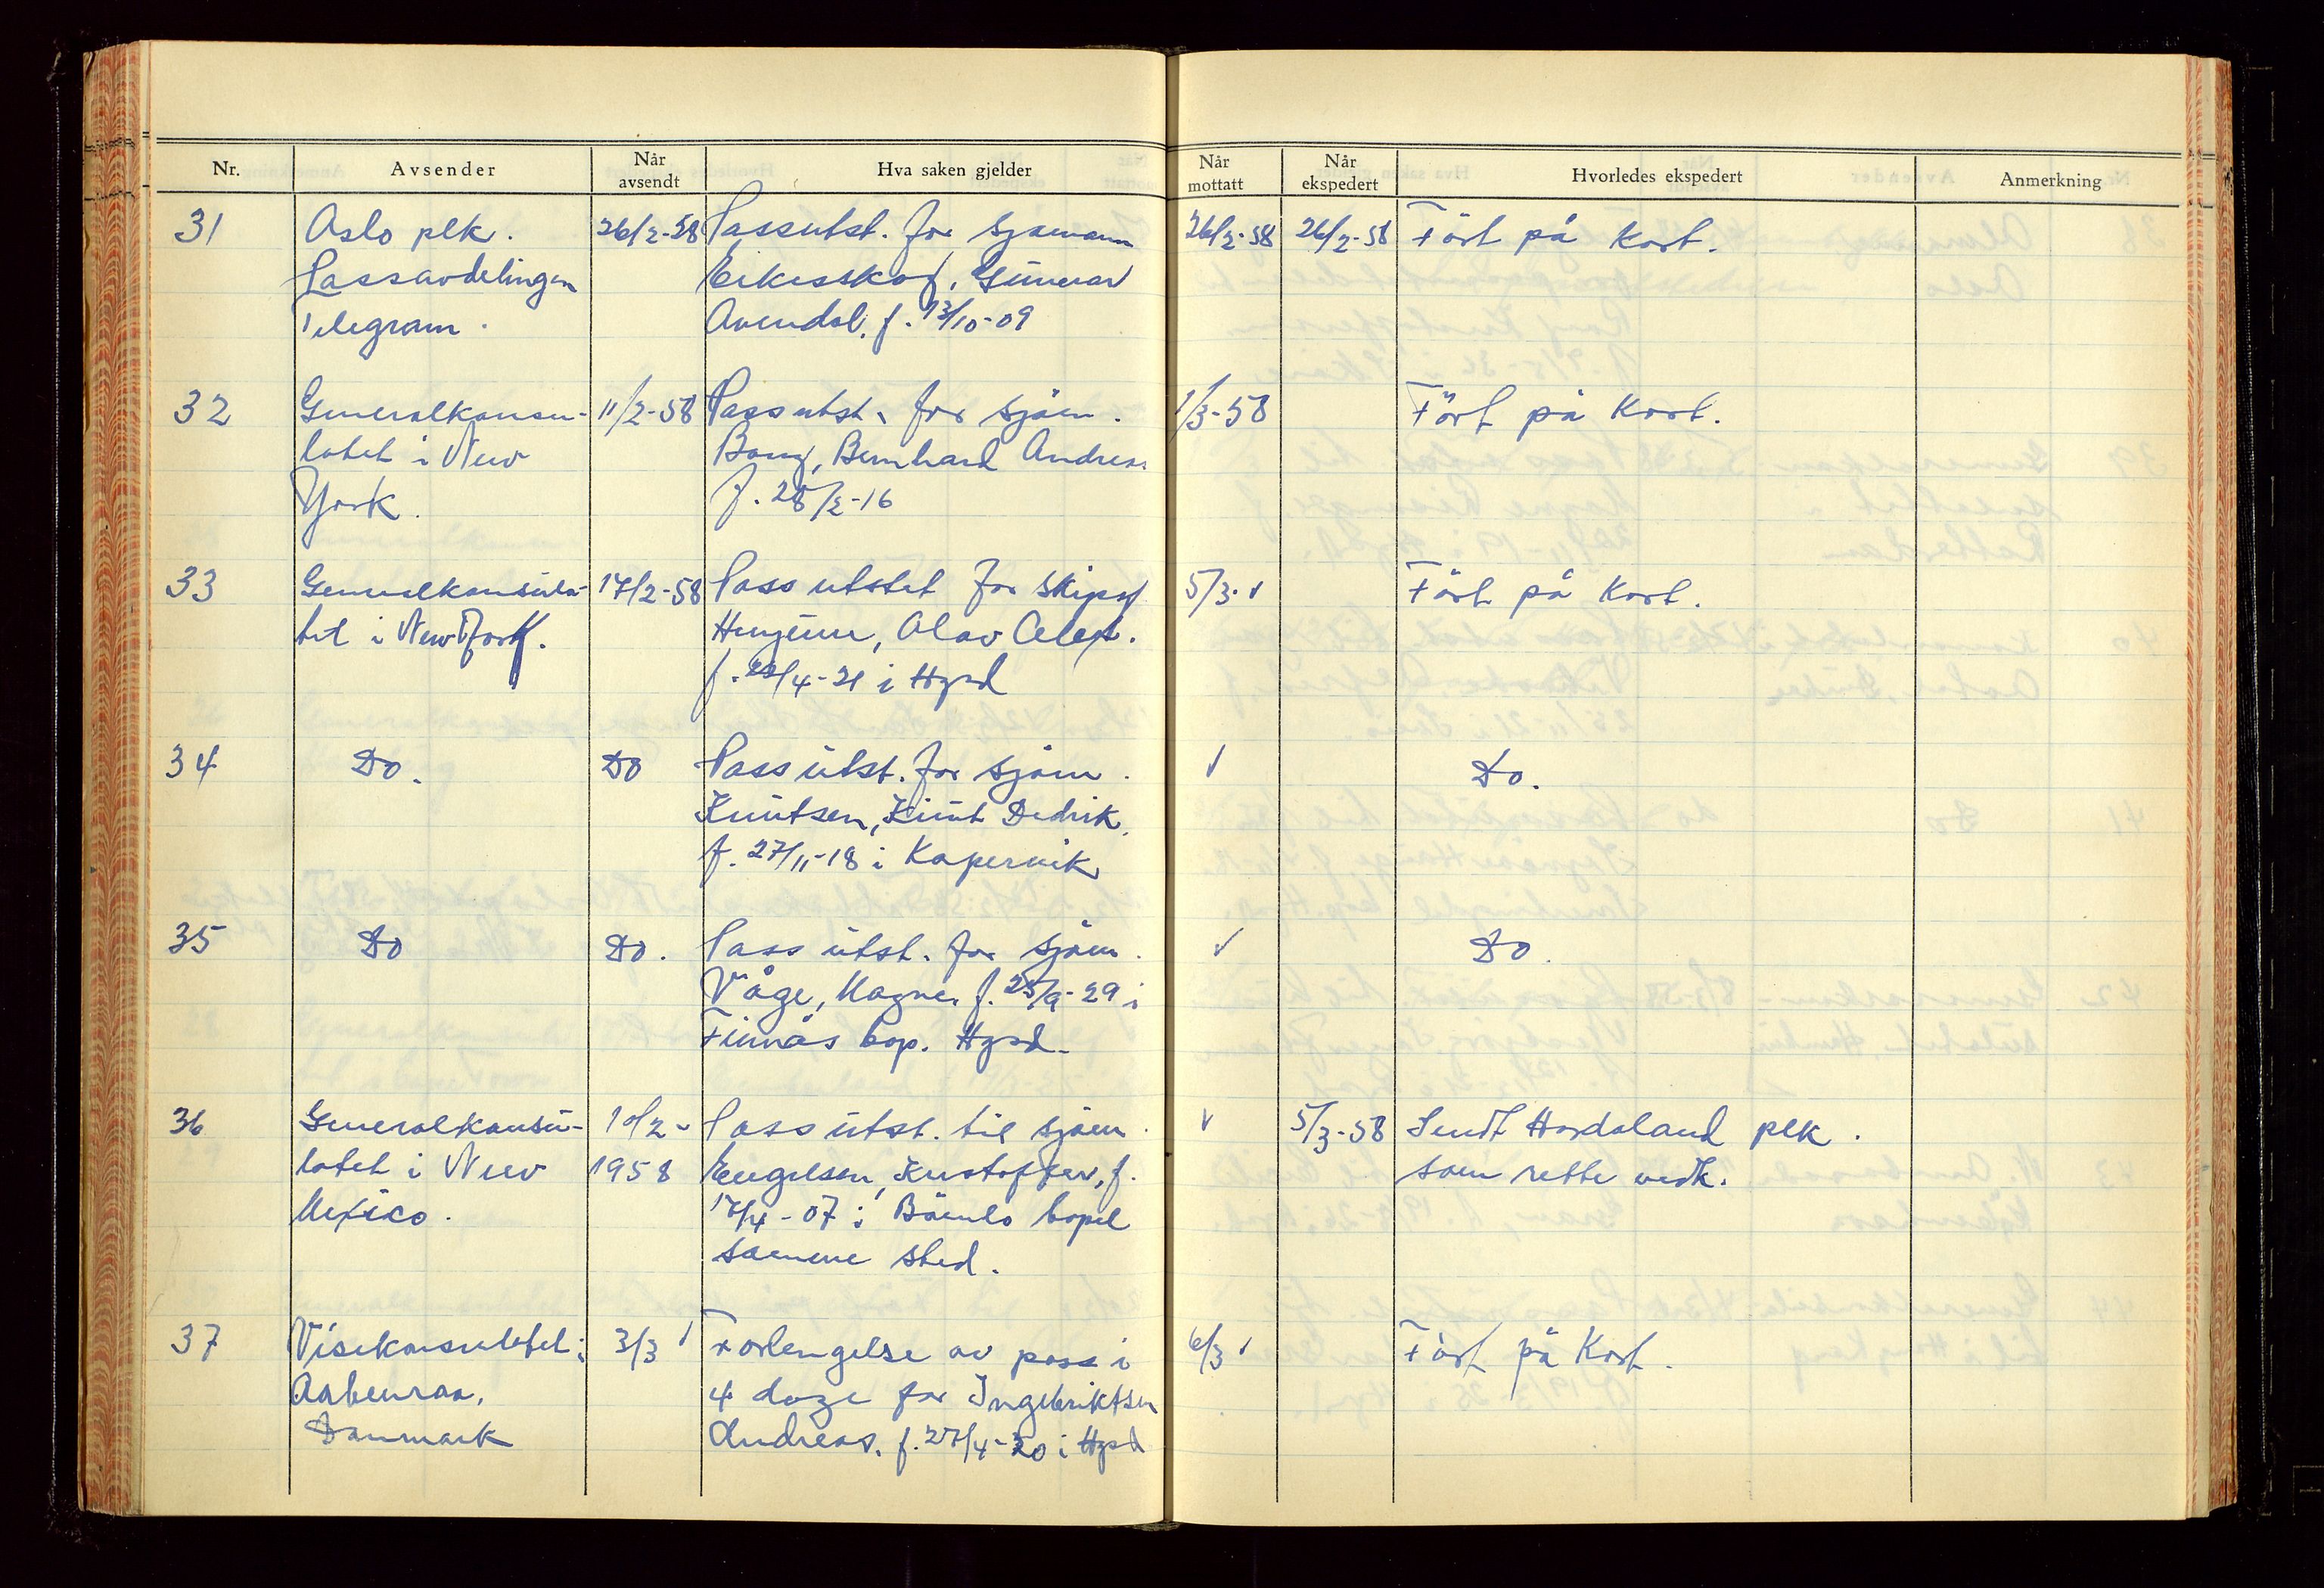 Nr.
Avsender
Når avsendt
Hva saken gjelder
Når mottatt
Når ekspedert
Hvorledes ekspedert
Anmerkning
31 Oslo plk. 26/2-58 Passutst. for sjømann 26/2-58 26/2-58 Ført på Kort.
Passavdelingen Eikeskog, Gunnar
Telegram. f. 13/10-09
32 Generalkonsu- 11/2-58 Pass utst. for sjöm. 1/3-58 Fört på Kort.
latet i New Bernhard Andreas
York. f. 28/2-16
33 Generalkonsula- 17/2-58 Pass utstet for 5/3. Fört på Kort.
tet i New York. Olav
i Hgsd
34 Do. Do Pass utst. for sjöm. Do.
Knutsen, Knut Dedrik,
f. 27/11-18 i Kopervik
35 Do Do. Pass utst. for sjöm. Do.
Våge, Magne, f. 25/9-29 i
Finnås bop. Hgsd.
36 Generalkonsu- 10/2- Pass utst. til sjöm. 5/3-58 Sendt Hordaland plk.
latet i New 1958 Engelsen, Kristoffer, f. som rette vedk.
Mexico. 17/4-07 i Bömlo bopel
samme sted.
37 Visekonsulatet i 3/3 Forlengelse av pass i 6/3 Fört på Kort.
Aabenraa, 4 dage for Ingebriktsen
Danmark Andreas. f. 27/4-20 i Hgsd